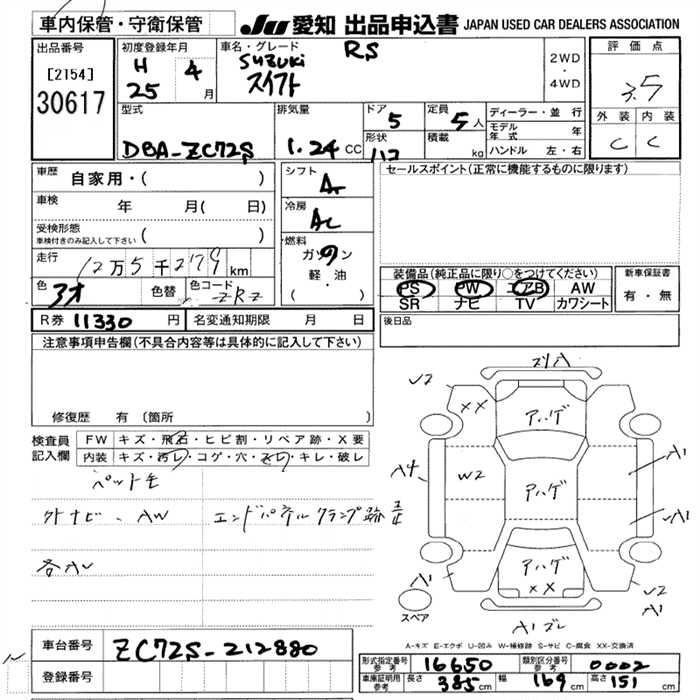 車内保管・守衛保管
JU 愛知 出品申込書 JAPAN USED CAR DEALERS ASSOCIATION
出品番号 初度登録年月 車名・グレード RS 2WD・4WD 評価点
[2154] H 4 SUZUKI 3.5
30617 25 月 スイフト 外装 内装
型式 排気量 ドア 5 定員 5人 ディーラー・並行 C C
モデル年式 年
DBA-ZC72S 1.24 CC 形状 積載 kg ハンドル 左・右
車歴 自家用・( ) シフト セールスポイント(正常に機能するものに限ります)
車検 年 月( 日) 冷房 AC
受検形態 ( )
車検付きのみ記入して下さい
燃料
走行 12万5千279km ガソリン
軽・油
( )
装備品(純正品に限り○をつけてください) 新車保証書
色 アオ 色替 色コード ZRZ PS PW エアB AW 有・無
SR ナビ TV カワシート
R券 11330 円 名変通知期限 月 日 後日品
注意事項申告欄(不具合内容等は具体的に記入して下さい)
修復歴 有 〔箇所
検査員記入欄 FW キズ・飛石・ヒビ割・リペア跡・X要
内装 キズ・汚レ・コゲ・穴・スレ・キレ・破レ
ペット毛
外ナビ、AW エンドパネルクランプ跡
各AU
U2 XX アハゲ
A4 W2 アハゲ A1
A1
アハゲ XX
A1 U2
スペア A1
A1
A-キズ E-エクボ U-凹み W-補修跡 S-サビ C-腐食 XX-交換済
車台番号 ZC72S-212880
登録番号
形式指定番号 参考 16650 類別区分番号 参考 0002
車庫証明用 参考 長さ 385cm 幅 169cm 高さ 151cm